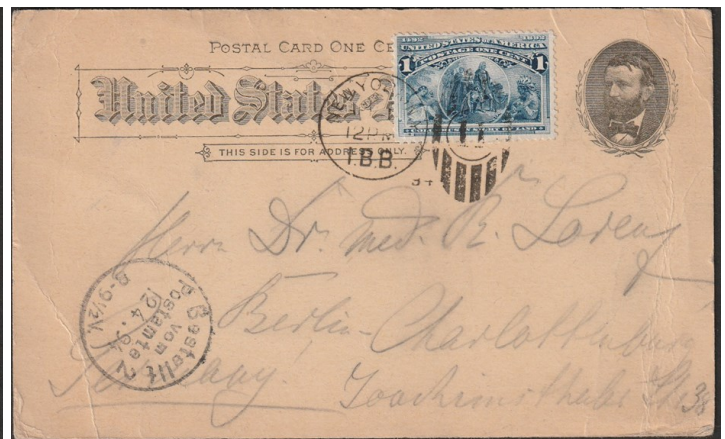 POSTAL CARD ONE CE
United States
THIS SIDE IS FOR ADDRESS ONLY.
1492 1892
UNITED STATES OF AMERICA
POSTAGE ONE CENT
1 1
COLUMBUS IN SIGHT OF LAND
NEW YORK
12 PM
I.B.B.
Herrn Dr. med. R. Lorenz
Berlin-Charlottenburg
Germany! Joachimsthaler Str. 38
Bestellt
vom
Postamte 2
24.
8-9½V